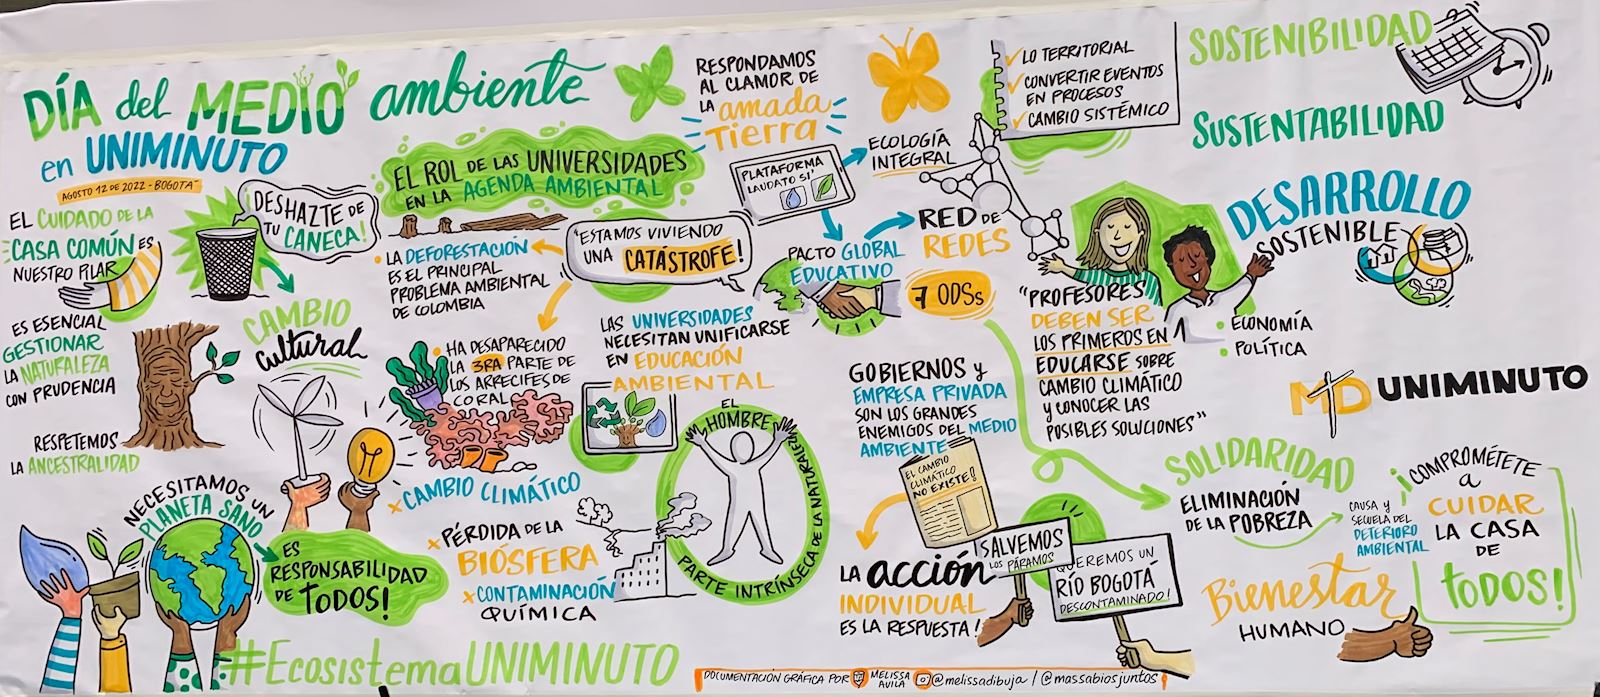 DÍA del MEDIO ambiente
en UNIMINUTO
AGOSTO 12 DE 2022 - BOGOTÁ
EL CUIDADO DE LA
CASA COMÚN ES
NUESTRO PILAR
DESHAZTE DE
TU CANECA!
CAMBIO
Cultural
ES ESENCIAL
GESTIONAR
LA NATURALEZA
CON PRUDENCIA
RESPETEMOS
LA ANCESTRALIDAD
NECESITAMOS UN
PLANETA SANO
ES
RESPONSABILIDAD
DE TODOS!
#EcosistemaUNIMINUTO
EL ROL DE LAS UNIVERSIDADES
EN LA AGENDA AMBIENTAL
"ESTAMOS VIVIENDO
UNA CATÁSTROFE!
LA DEFORESTACIÓN
ES EL PRINCIPAL
PROBLEMA AMBIENTAL
DE COLOMBIA
HA DESAPARECIDO
LA 3RA PARTE DE
LOS ARRECIFES DE
CORAL
x CAMBIO CLIMÁTICO
x PÉRDIDA DE LA
BIÓSFERA
x CONTAMINACIÓN
QUÍMICA
LAS UNIVERSIDADES
NECESITAN UNIFICARSE
EN EDUCACIÓN
AMBIENTAL
EL
HOMBRE
PARTE INTRÍNSECA DE LA NATURALEZA
RESPONDAMOS
AL CLAMOR DE
LA amada
TIERRA
PLATAFORMA
LAUDATO SI'
ECOLOGÍA
INTEGRAL
PACTO GLOBAL
EDUCATIVO
RED DE
REDES
7 ODSs
GOBIERNOS y
EMPRESA PRIVADA
SON LOS GRANDES
ENEMIGOS DEL MEDIO
AMBIENTE
EL CAMBIO
CLIMÁTICO
NO EXISTE!
LA acción
INDIVIDUAL
ES LA RESPUESTA!
¡SALVEMOS
LOS PÁRAMOS
QUEREMOS UN
RÍO BOGOTÁ
DESCONTAMINADO!
LO TERRITORIAL
CONVERTIR EVENTOS
EN PROCESOS
CAMBIO SISTÉMICO
"PROFESORES
DEBEN SER
LOS PRIMEROS EN
EDUCARSE SOBRE
CAMBIO CLIMÁTICO
y CONOCER LAS
POSIBLES SOLUCIONES"
SOSTENIBILIDAD
SUSTENTABILIDAD
DESARROLLO
SOSTENIBLE
ECONOMÍA
POLÍTICA
MD UNIMINUTO
SOLIDARIDAD
ELIMINACIÓN
DE LA POBREZA
CAUSA Y
SECUELA DEL
DETERIORO
AMBIENTAL
Bienestar
HUMANO
¡COMPROMÉTETE
A
CUIDAR
LA CASA
DE
TODOS!
DOCUMENTACIÓN GRÁFICA POR MELISSA AVILA @melissadibuja / @massabiosjuntos